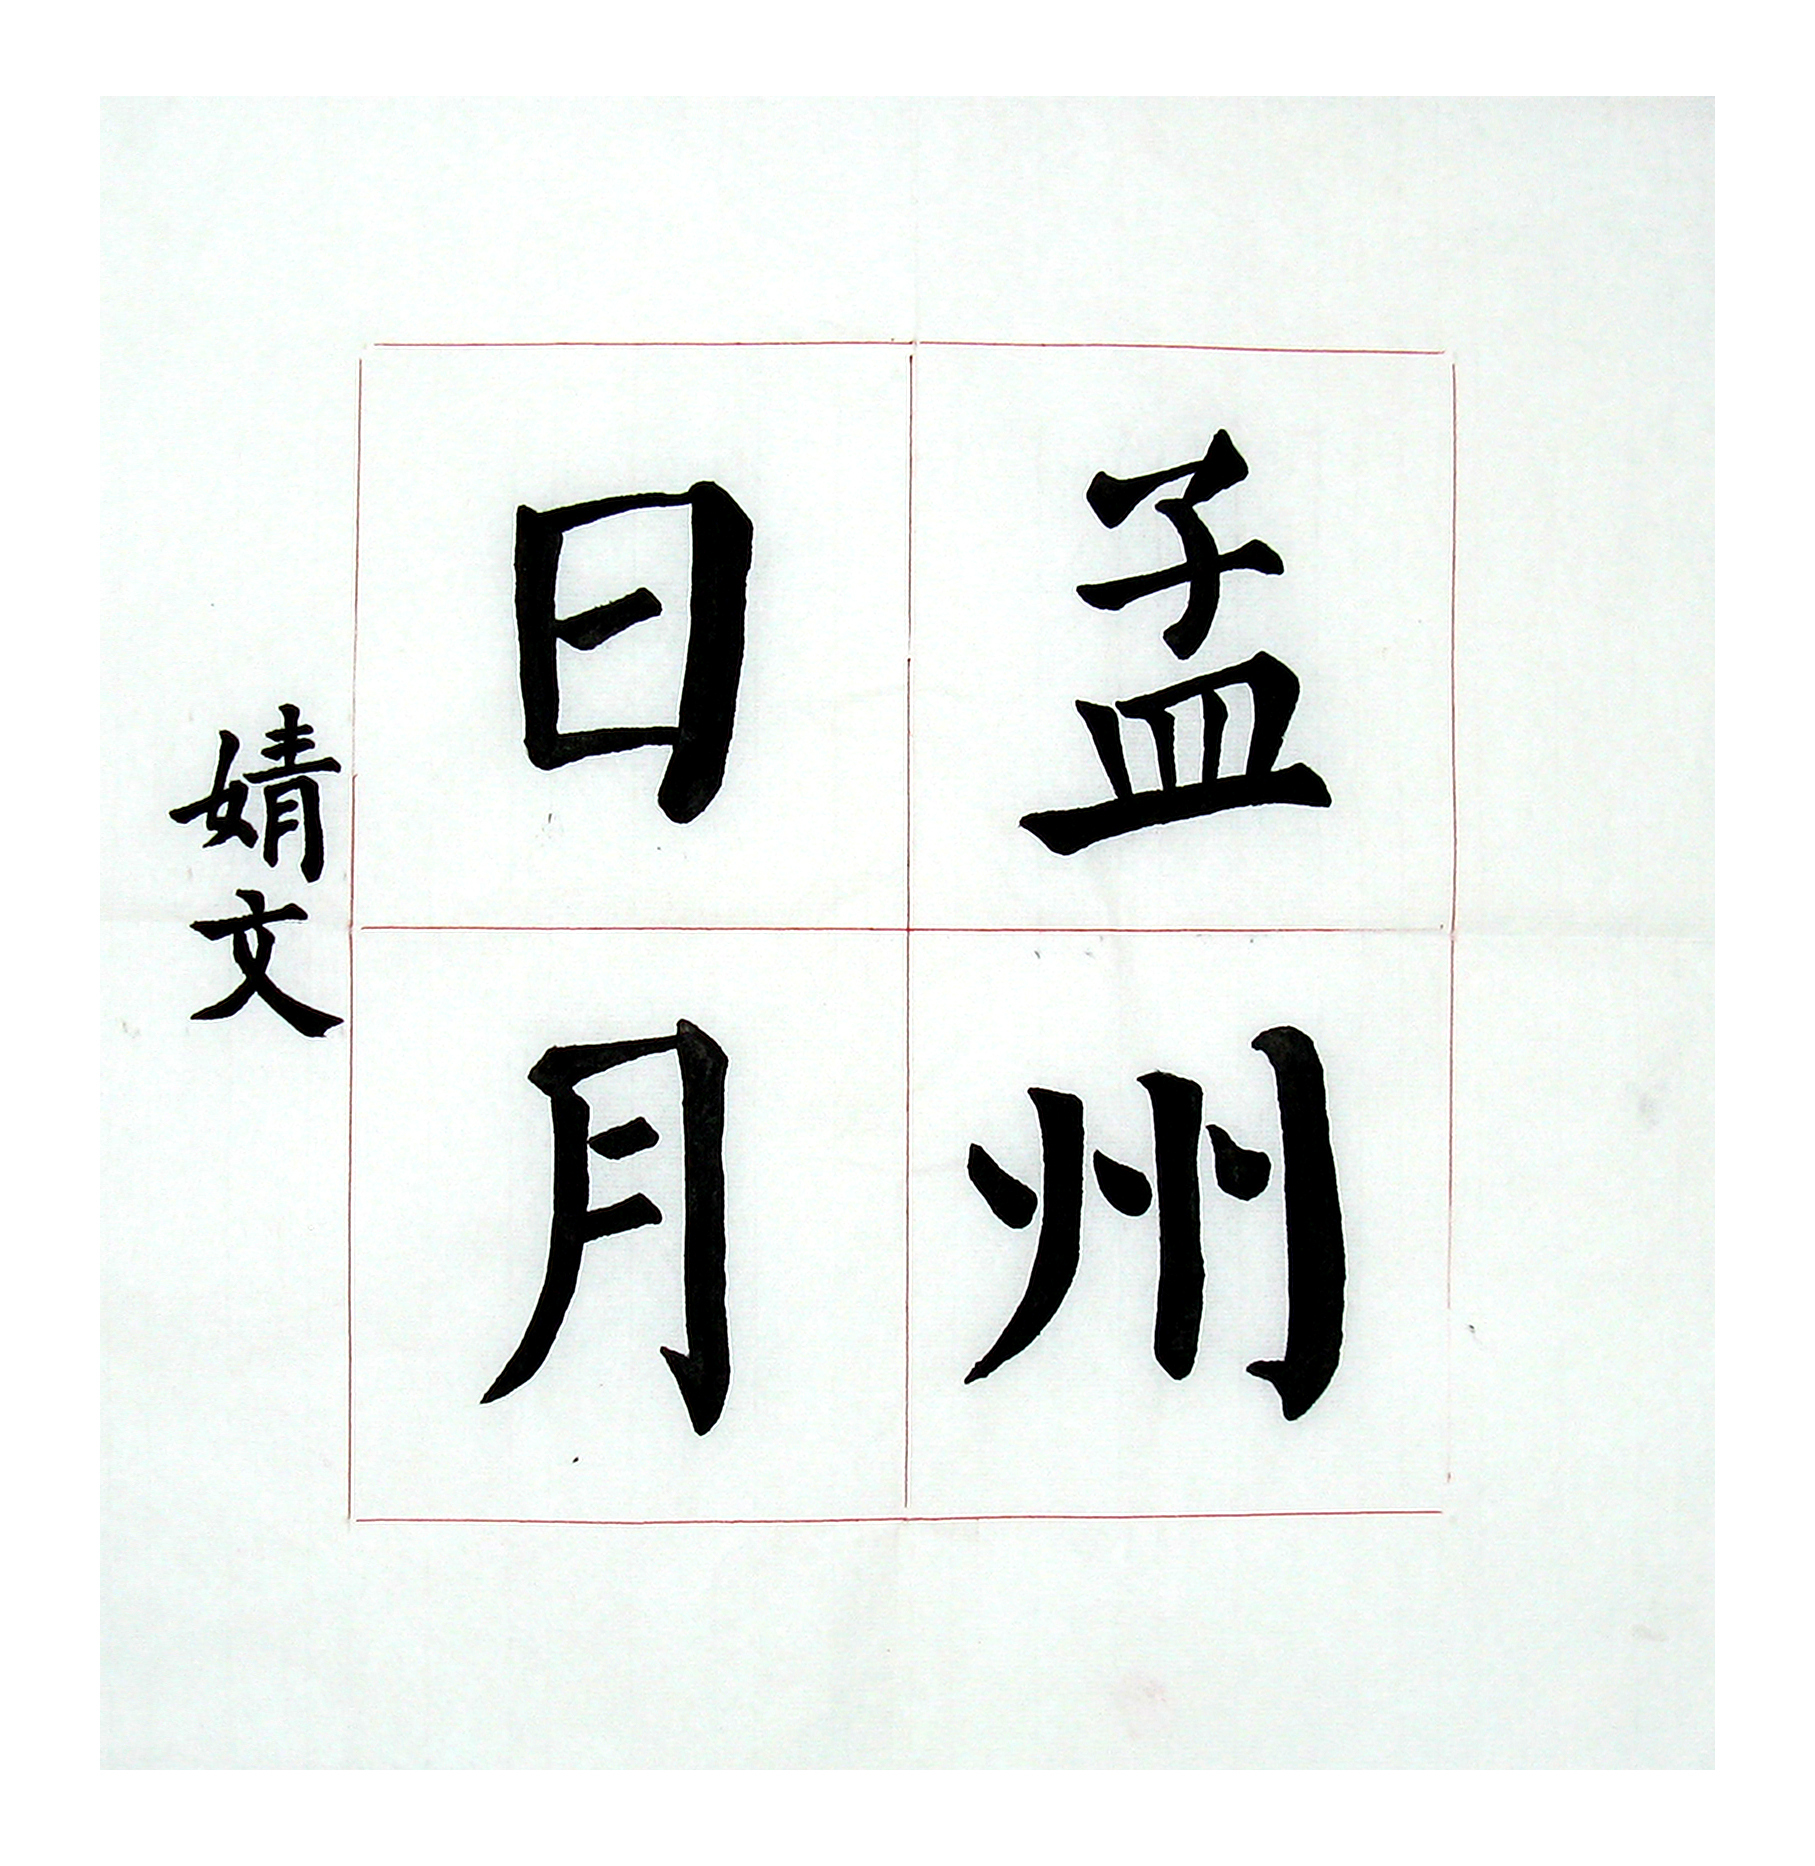 孟州
日月
婧文